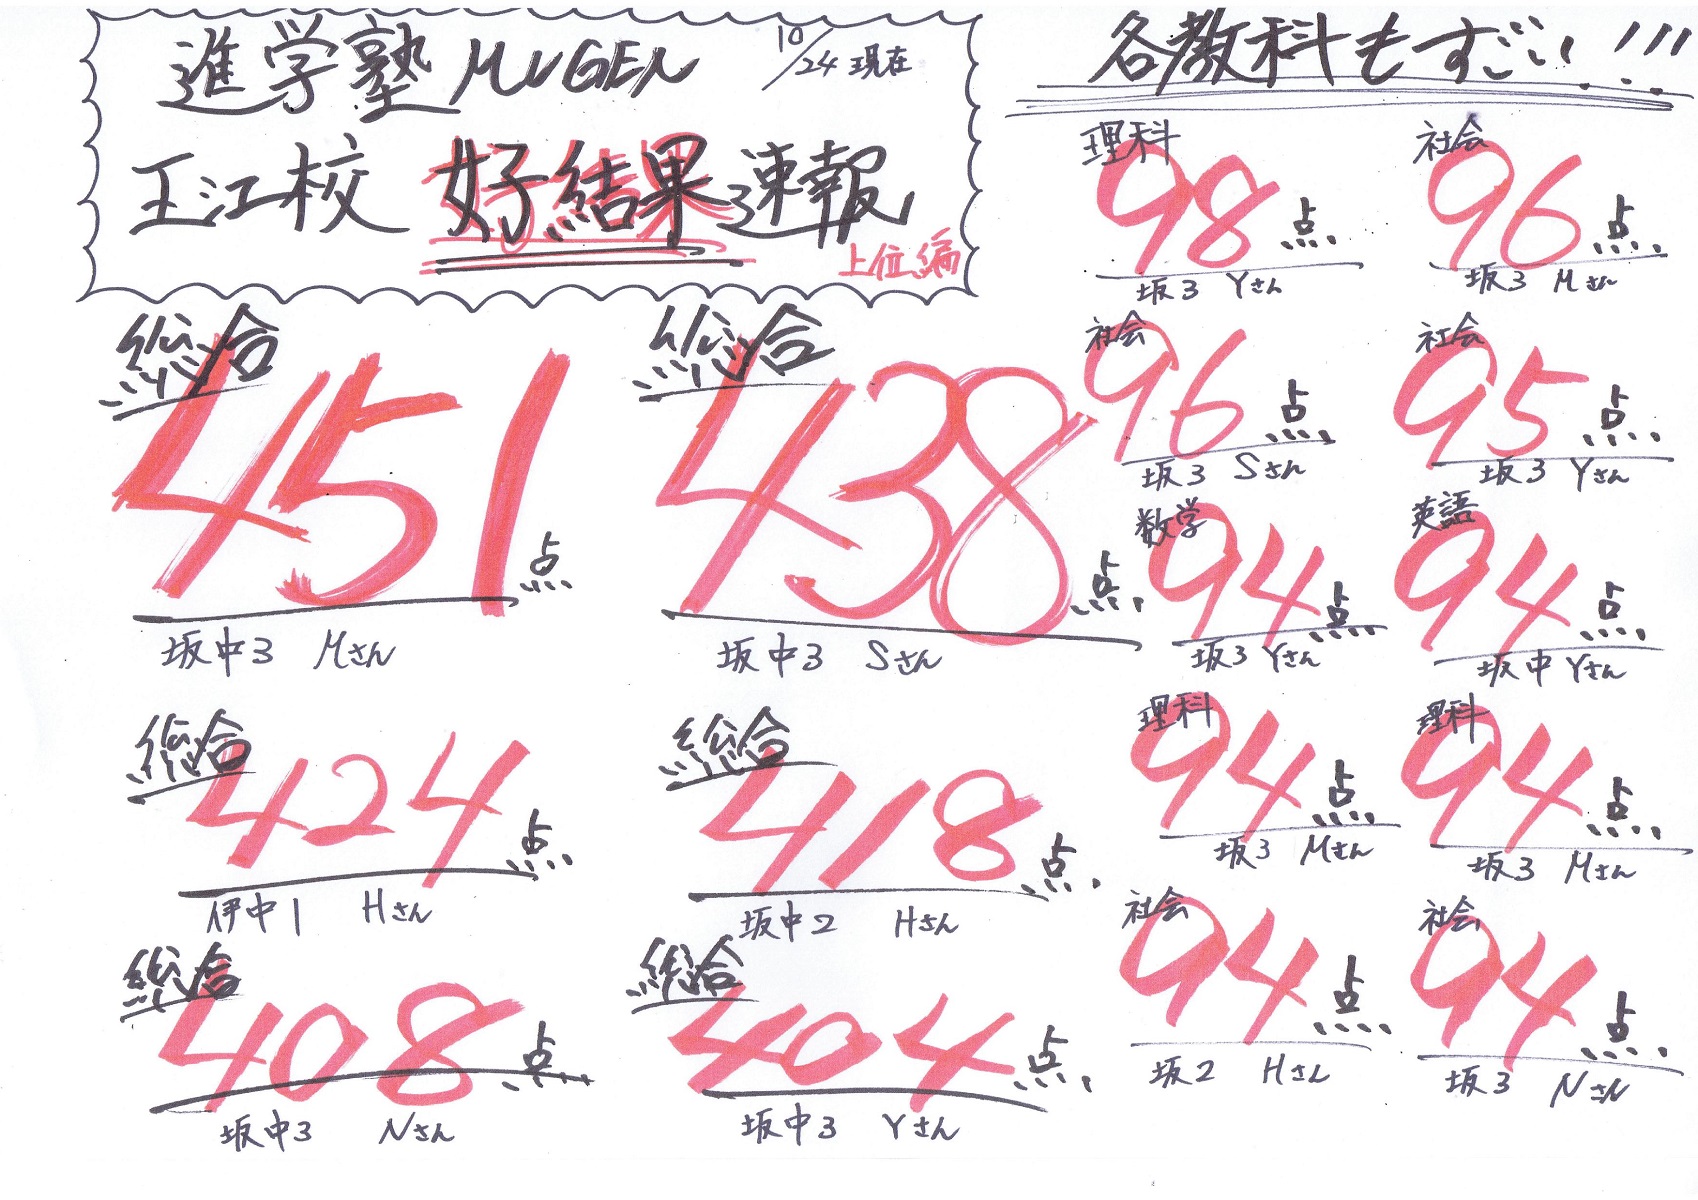 進学塾MUGEN 10/24現在
玉江校 好結果速報
上位編
総合 451点
坂中3 Mさん
総合 438点
坂中3 Sさん
総合 424点
伊中1 Hさん
総合 418点
坂中2 Hさん
総合 408点
坂中3 Nさん
総合 404点
坂中3 Yさん
各教科もすごい!!!
理科 98点
坂3 Yさん
社会 96点
坂3 Mさん
社会 96点
坂3 Sさん
社会 95点
坂3 Yさん
数学 94点
坂3 Yさん
英語 94点
坂中 Yさん
理科 94点
坂3 Mさん
理科 94点
坂3 Mさん
社会 94点
坂2 Hさん
社会 94点
坂3 Nさん